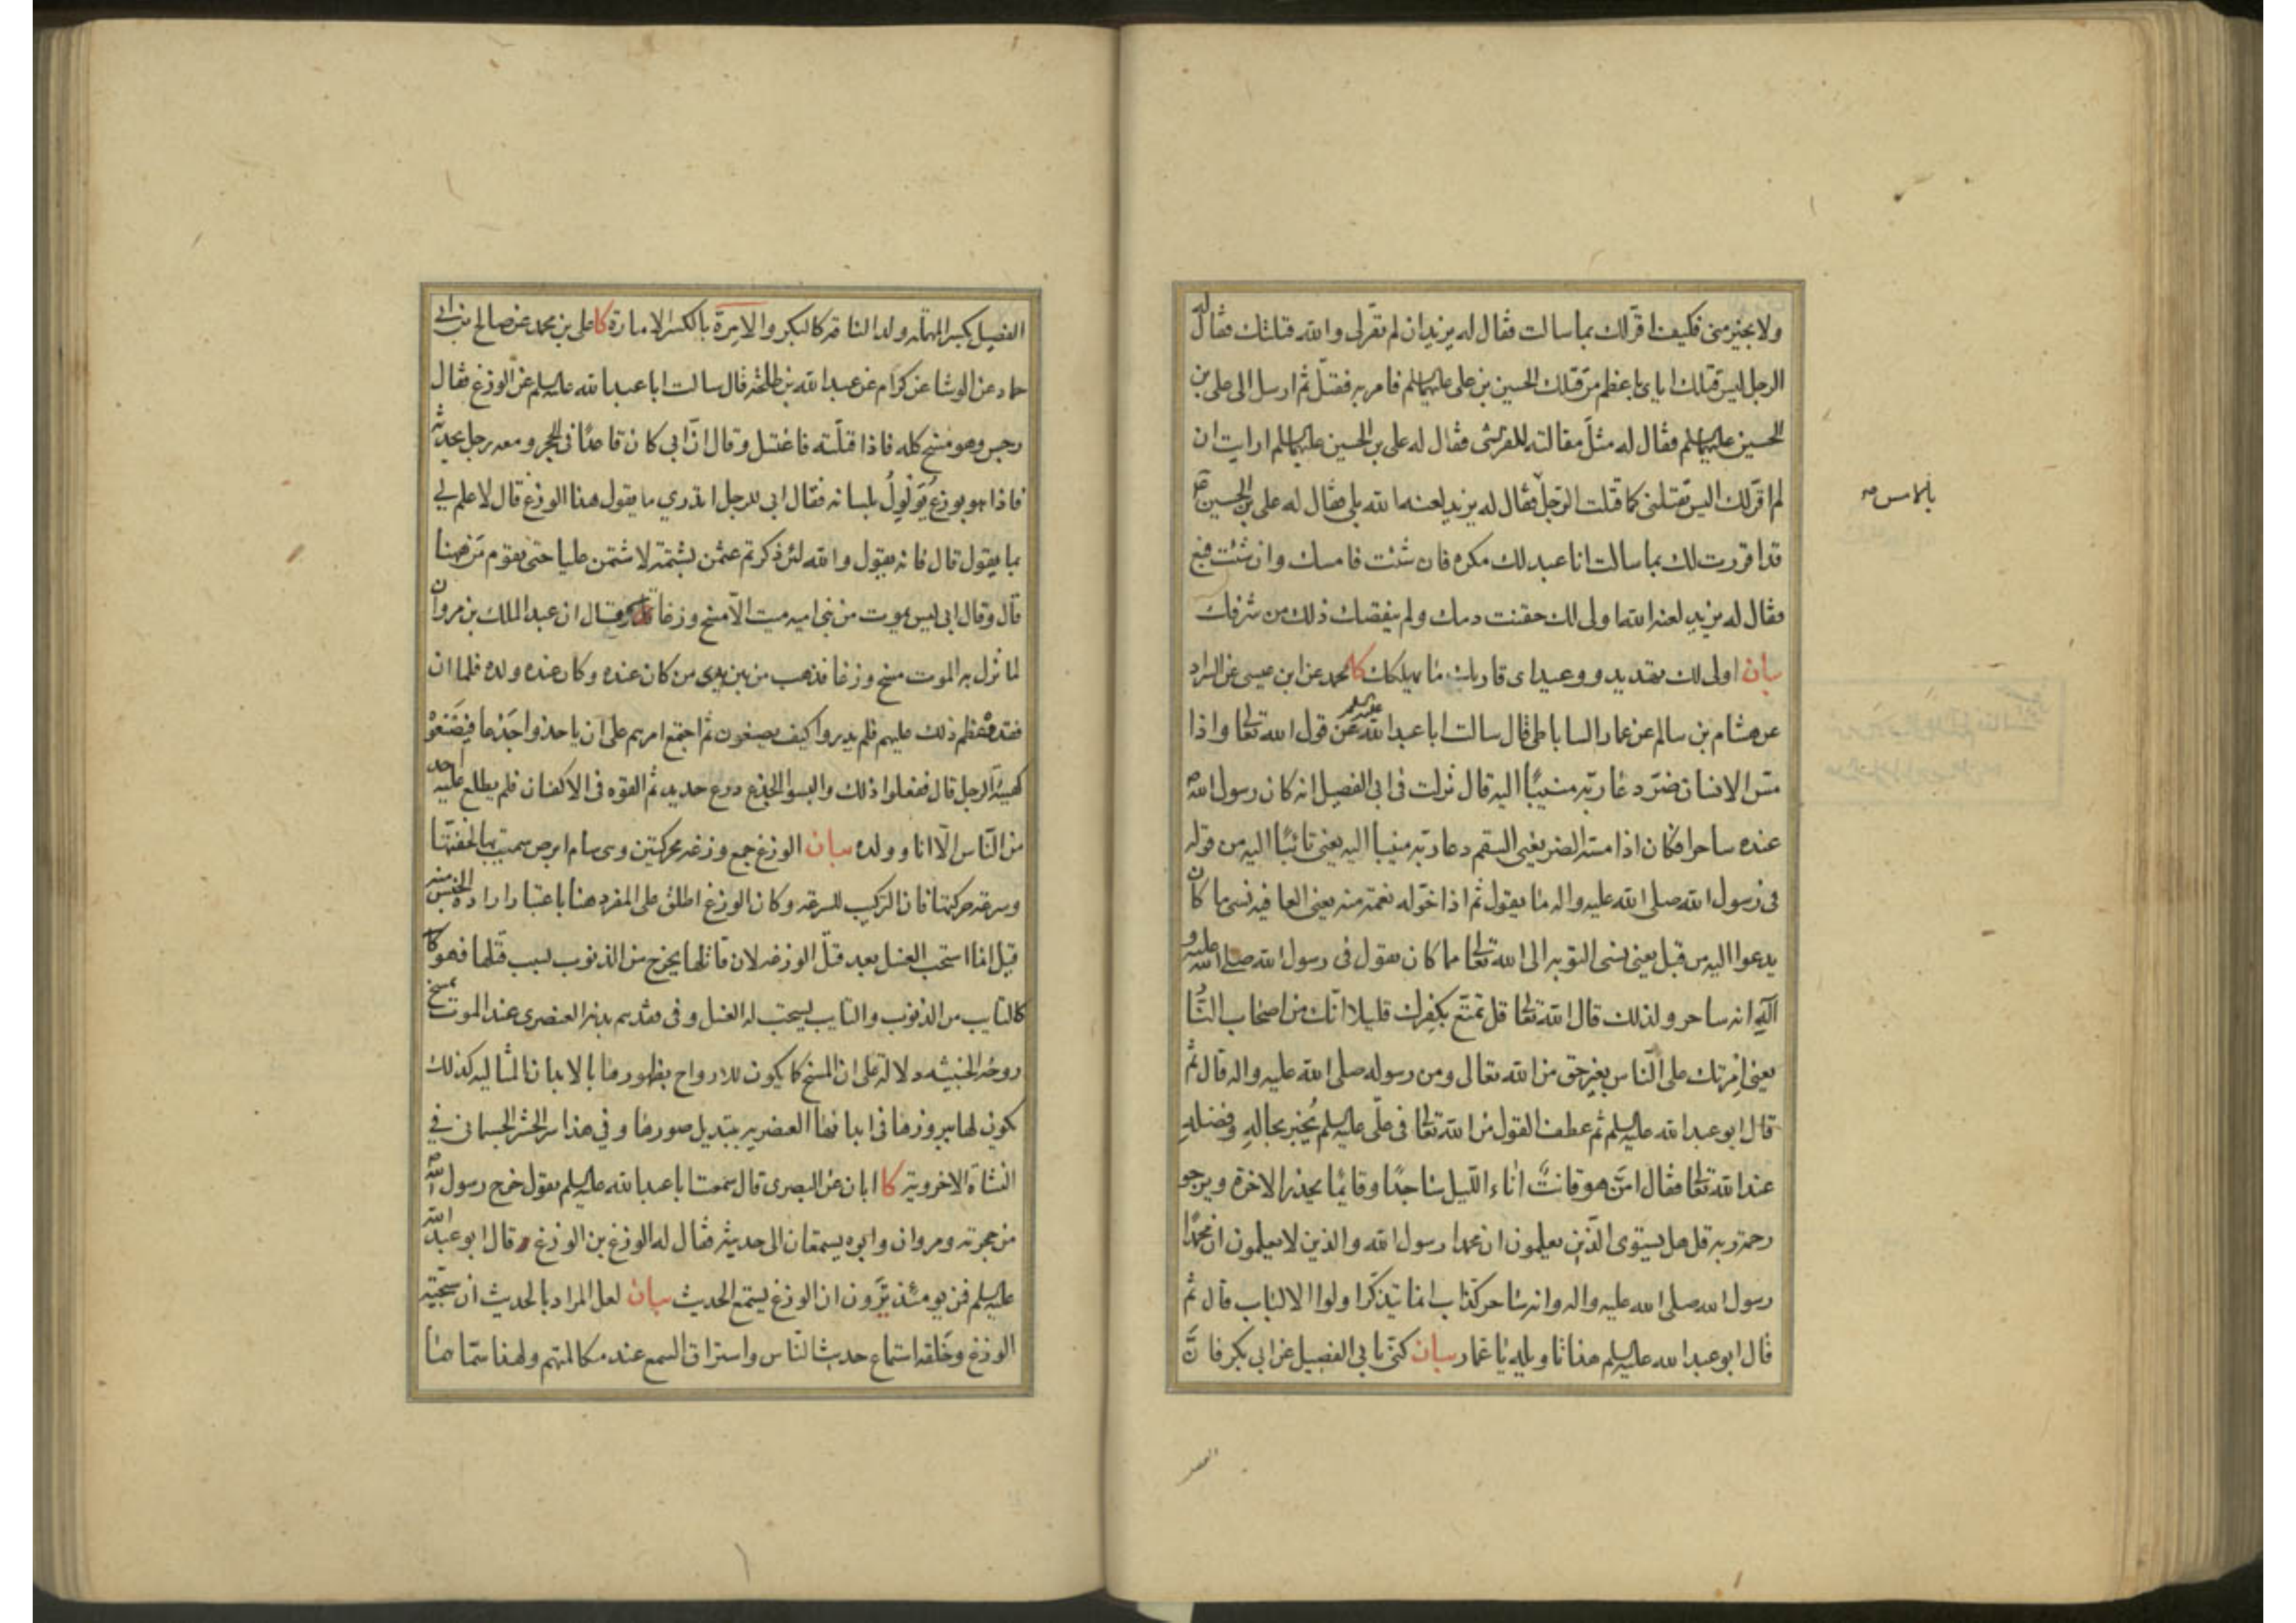 ولا بخير منى فكيف اقر لك بما سالت فقال له يزيد ان لم تقر لى والله قتلتك فقال له
الرجل ليس قتلك اياى باعظم من قتلك الحسين بن على عليهما السلم فامر به فقتل ثم ارسل الى على بن
الحسين عليهما السلم فقال له مثل مقالته للقرشى فقال له على بن الحسين عليهما السلم ارايت ان
لم اقر لك اليس تقتلنى كما قتلت الرجل فقال له يزيد لعنه الله بلى فقال له على بن الحسين ع
بالامس صح
قد اقررت لك بما سالت انا عبد لك مكره فان شئت فامسك وان شئت فبع
فقال له يزيد لعنه الله اولى لك حقنت دمك ولم ينقصك ذلك من شرفك
بيان اولى لك تهديد ووعيد اى قاربك ما يهلكك كا محمد عن ابن عيسى عن السراد
عن هشام بن سالم عن عمار الساباطى قال سالت ابا عبد الله عليه السلم عن قول الله تعالى واذا
مس الانسان ضر دعا ربه منيبا اليه قال نزلت فى ابى الفصيل انه كان رسول الله ص
عنده ساحرا فكان اذا مسه الضر يعنى السقم دعا ربه منيبا اليه يعنى تائبا اليه من قوله
فى رسول الله صلى الله عليه واله ما يقول ثم اذا خوله نعمة منه يعنى العافيه نسى ما كان
يدعوا اليه من قبل يعنى نسى التوبه الى الله تعالى مما كان يقول فى رسول الله صلى الله عليه و
آله انه ساحر ولذلك قال الله تعالى قل تمتع بكفرك قليلا انك من اصحاب النار
يعنى امرتك على الناس بغير حق من الله تعالى ومن رسوله صلى الله عليه واله قال ثم
قال ابو عبد الله عليه السلم ثم عطف القول من الله تعالى فى على عليه السلم يخبر بحاله وفضله
عند الله تعالى فقال امن هو قانت اناء الليل ساجدا وقائما يحذر الاخرة ويرجو
رحمة ربه قل هل يستوى الذين يعلمون ان محمدا رسول الله والذين لا يعلمون ان محمدا
رسول الله صلى الله عليه واله وانه ساحر كذاب انما يتذكر اولوا الالباب قال ثم
قال ابو عبد الله عليه السلم هذا تاويله يا عمار بيان كنى بابى الفصيل عن ابى بكر فان
الفصيل بكسر المهمله ولد الناقه كالبكر والامرة بالكسر الامارة كا على بن محمد عن صالح بن ابى
حماد عن الوشا عن كرام عن عبد الله بن طلحة قال سالت ابا عبد الله عليه السلم عن الوزغ فقال
رجس وهو مسخ كله فاذا قتلته فاغتسل وقال ان ابى كان قاعدا فى الحجر ومعه رجل يحدثه
فاذا هو بوزغ يولول بلسانه فقال ابى للرجل اتدري ما يقول هذا الوزغ قال لا علم لي
بما يقول قال فانه يقول والله لئن ذكرتم عثمن بشتمة لاشتمن عليا حتى يقوم من ههنا
قال وقال ابى ليس يموت من بنى اميه ميت الا مسخ وزغا قال وقال ان عبد الملك بن مروان
لما نزل به الموت مسخ وزغا فذهب من بين يدى من كان عنده وكان عنده ولده فلما ان
فقدوه عظم ذلك عليهم فلم يدروا كيف يصنعون ثم اجتمع امرهم على ان ياخذوا جذعا فيصنعوه
كهيئة الرجل قال ففعلوا ذلك والبسوا الجذع درع حديد ثم القوه فى الاكفان فلم يطلع عليه احد
من الناس الا انا وولده بيان الوزغ جمع وزغه محركتين وهى سام ابرص سميت بها لخفتها
وسرعة حركتها فان التركيب للسرعه وكان الوزغ اطلق على المفرد هنا باعتبار ارادة الجنس منه
قيل انما استحب الغسل بعد قتل الوزغه لان قاتلها يخرج من الذنوب لسبب قتلها فهو كا
كالتايب من الذنوب والتايب يستحب له الغسل وفى فقدهم بدنه العنصرى عند الموت بمسخ
روحه الخبيثه دلالة على ان المسخ كما يكون للارواح بظهورها بالابدان المثاليه كذلك
يكون لها ببروزها فى ابدانها العنصريه بتبديل صورها وفي هذا سر الحشر الجسمانى في
النشاة الاخرويه كا ابان عن البصرى قال سمعت ابا عبد الله عليه السلم يقول خرج رسول الله ص
من حجرته ومروان وابوه يستمعان الى حديثه فقال له الوزغ بن الوزغ وقال ابو عبد الله
عليه السلم فمن يومئذ يرون ان الوزغ يستمع الحديث بيان لعل المراد بالحديث ان سجية
الوزغ وخلقه استماع حديث الناس واستراق السمع عند مكالمتهم ولهذا سماهما